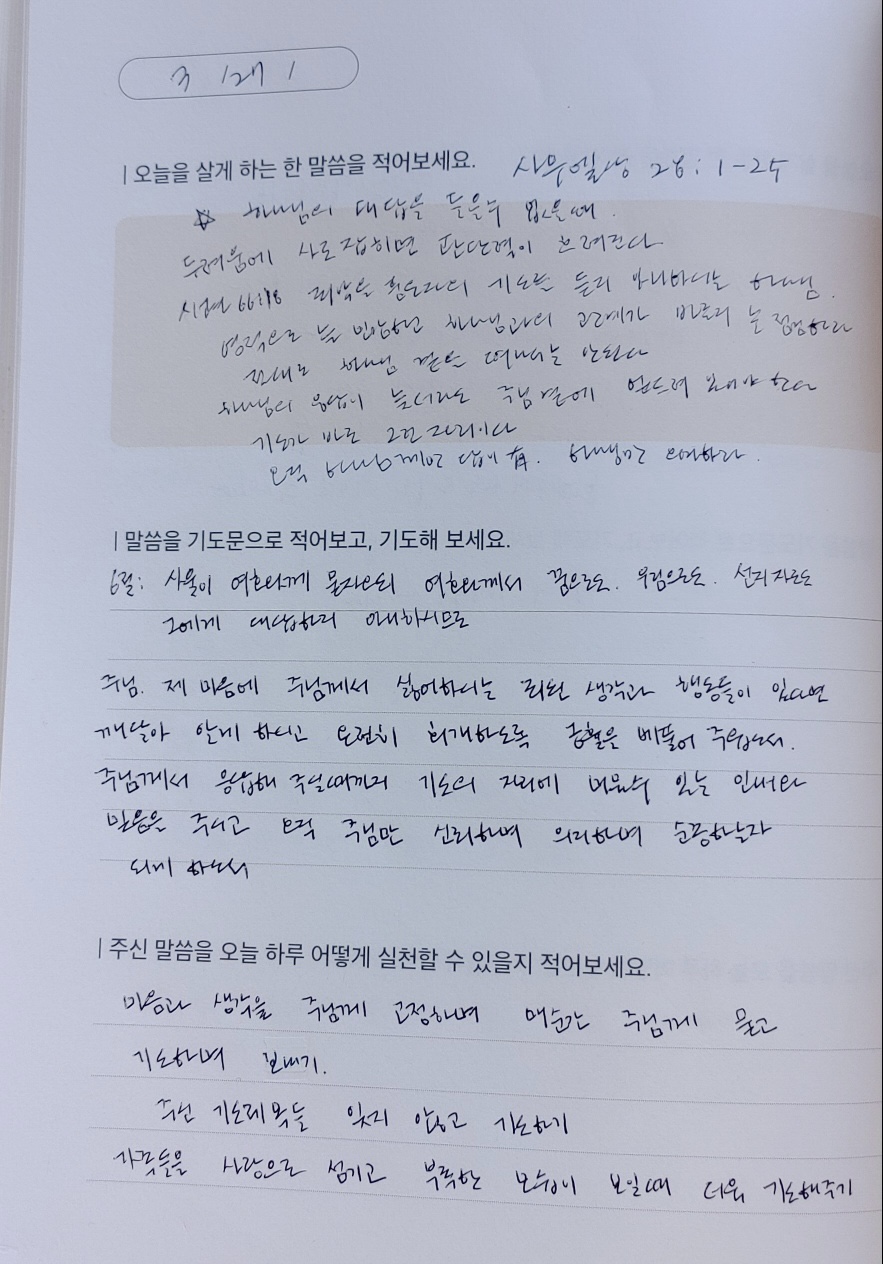 오늘을 살게 하는 한 말씀을 적어보세요. 사무엘상 28 : 1-25
☆ 하나님의 대답을 들을수 없을때.
두려움에 사로잡히면 판단력이 흐려진다
시편 66:18 죄악을 품은자의 기도를 듣지 아니하시는 하나님.
영적으로 늘 민감하고 하나님과의 관계가 바른지 늘 점검하라
절대로 하나님 곁을 떠나서는 안된다
하나님의 응답이 늦더라도 주님 곁에 엎드려 있어야 한다
기도가 바로 그런 자리이다
오직 하나님께만 답이 有. 하나님만 의지하라.
말씀을 기도문으로 적어보고, 기도해 보세요.
6절: 사울이 여호와께 묻자오되 여호와께서 꿈으로도. 우림으로도. 선지자로도
그에게 대답하지 아니하시므로
주님. 제 마음에 주님께서 싫어하시는 죄된 생각과 행동들이 있다면
깨달아 알게 하시고 온전히 회개하도록 긍휼을 베풀어 주옵소서.
주님께서 응답해 주실때까지 기도의 자리에 머물수 있는 인내와
믿음을 주시고 오직 주님만 신뢰하며 의지하며 순종하는자
되게 하소서
주신 말씀을 오늘 하루 어떻게 실천할 수 있을지 적어보세요.
마음과 생각을 주님께 고정하며 매순간 주님께 묻고
기도하며 보내기.
주신 기도제목들 잊지 않고 기도하기
가족들을 사랑으로 섬기고 부족한 모습이 보일때 더욱 기도해주기